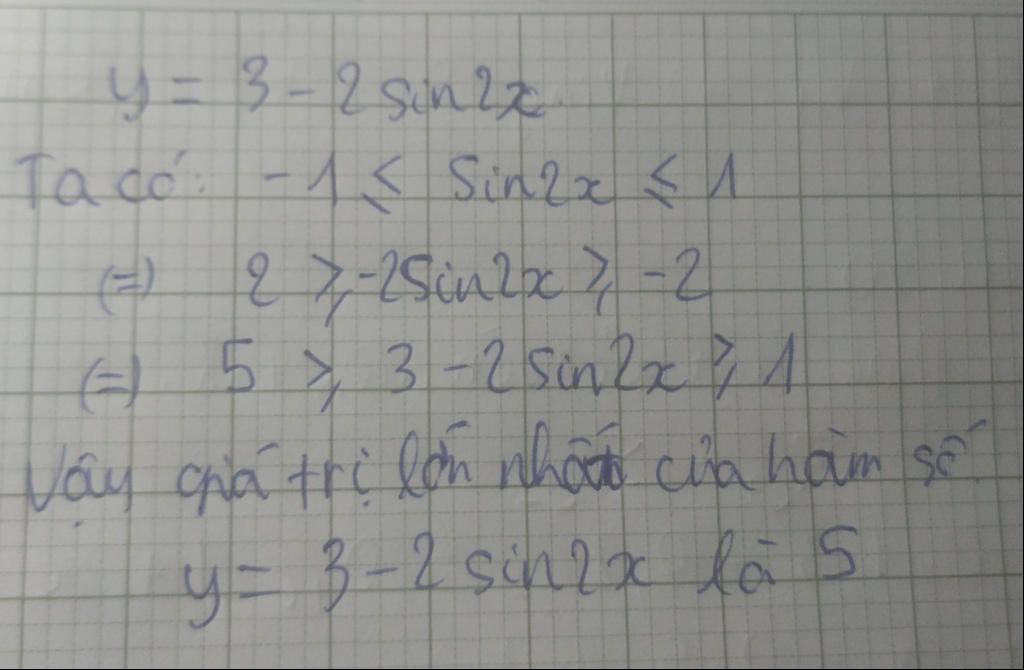 y = 3 - 2 sin2x
Ta có: -1 ≤ sin2x ≤ 1
(=) 2 ≥ -2sin2x ≥ -2
(=) 5 ≥ 3 - 2 sin2x ≥ 1
Vậy giá trị lớn nhất của hàm số
y = 3 - 2 sin2x là 5